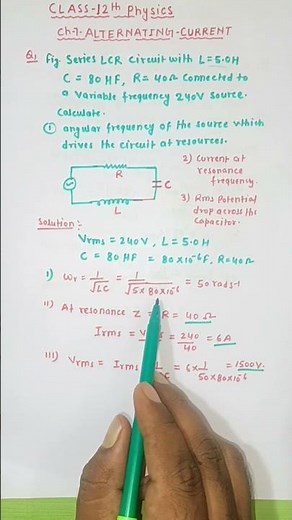 CLASS-12th Physics
Ch-7. ALTERNATING-CURRENT
Q. Fig. Series LCR circuit with L=5.0H
C = 80 HF, R= 40Ω Connected to
a variable frequency 240V source.
Calculate.
① angular frequency of the source which
drives the circuit at resources.
2) Current at
resonance
frequency.
3) Rms Potential
drop across the
Capacitor.
R
C
L
Solution:
Vrms = 240V, L = 5.0H
C = 80 HF = 80×10⁻⁶F, R=40Ω
i) ωr = 1/√LC = 1/√5×80×10⁻⁶ = 50 rads⁻¹
ii) At resonance Z = R = 40 Ω
Irms = = 240/40 = 6A
iii) Vrms = Irms = 6×1/50×80×10⁻⁶ = 1500V.